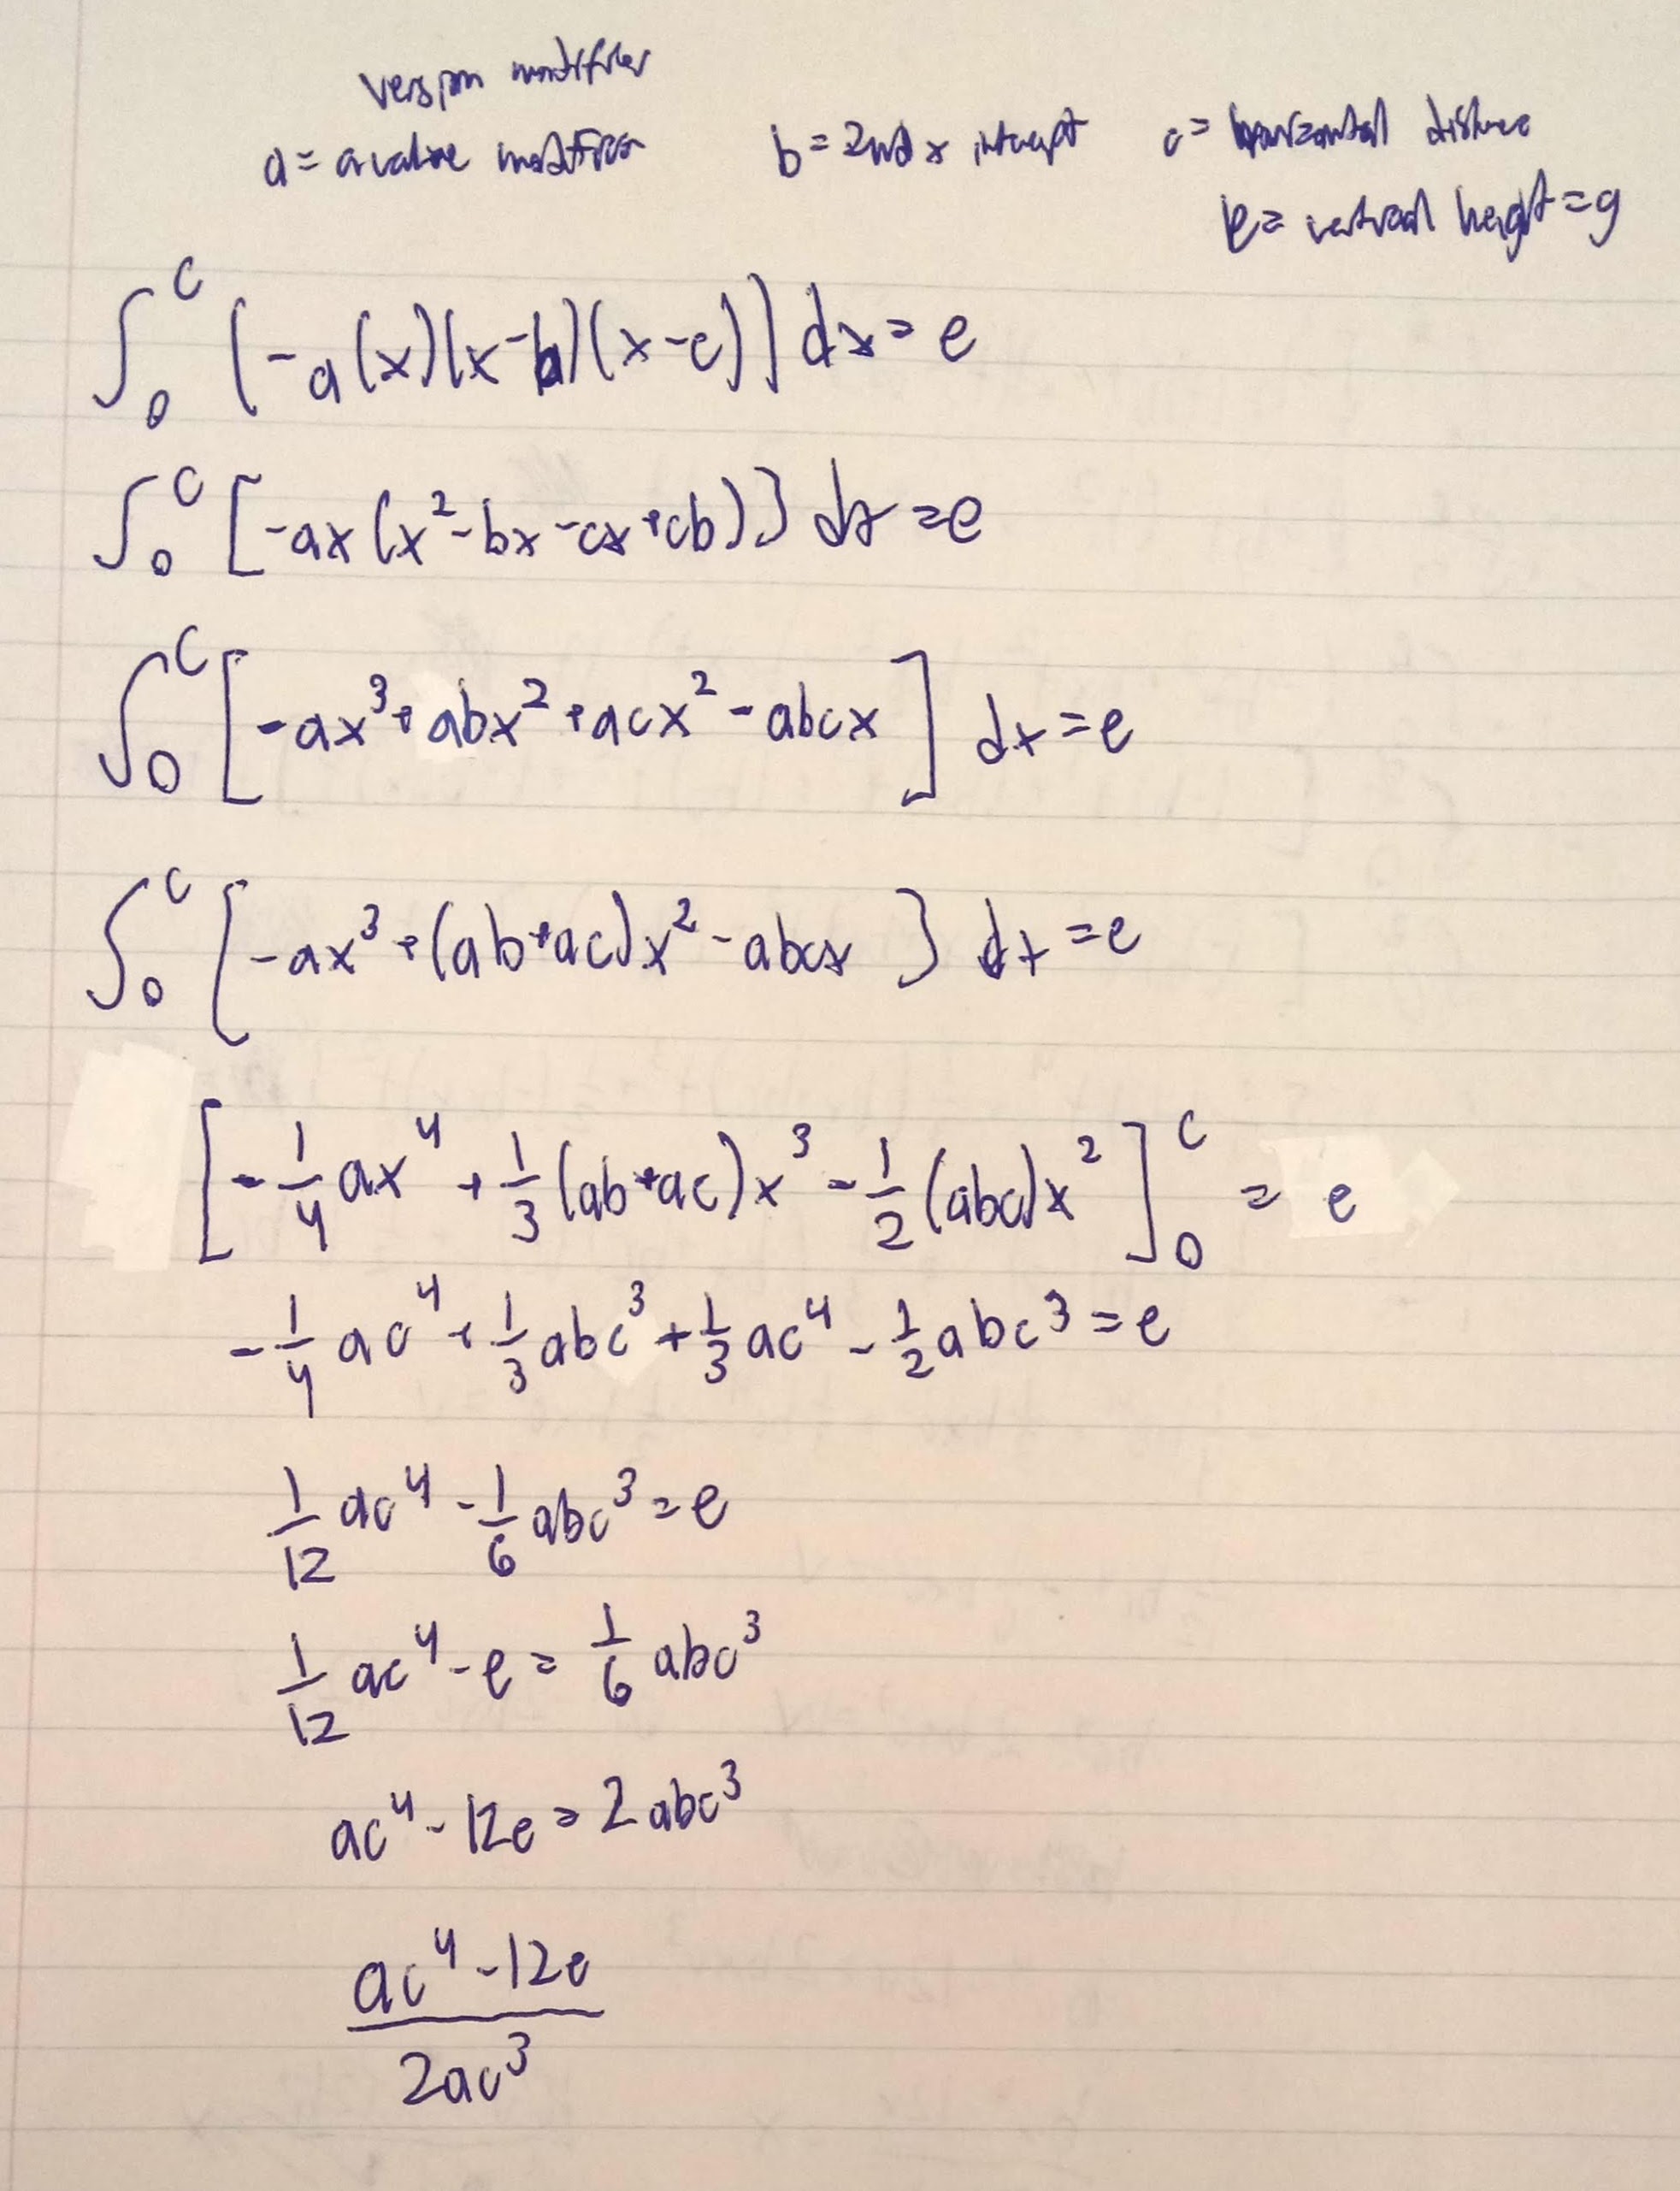 version modifier
a = a value modifier b = 2nd x intercept c = horizontal distance
e = vertical height = g
∫₀ᶜ [-a(x)(x-b)(x-c)] dx = e
∫₀ᶜ [-ax(x²-bx-cx+cb)] dx = e
∫₀ᶜ [-ax³+abx²+acx²-abcx] dx = e
∫₀ᶜ [-ax³+(ab+ac)x²-abcx] dx = e
[-1/4 ax⁴ + 1/3 (ab+ac)x³ - 1/2 (abc)x²]₀ᶜ = e
-1/4 ac⁴ + 1/3 abc³ + 1/3 ac⁴ - 1/2 abc³ = e
1/12 ac⁴ - 1/6 abc³ = e
1/12 ac⁴ - e = 1/6 abc³
ac⁴ - 12e = 2abc³
ac⁴ - 12e
2ac³